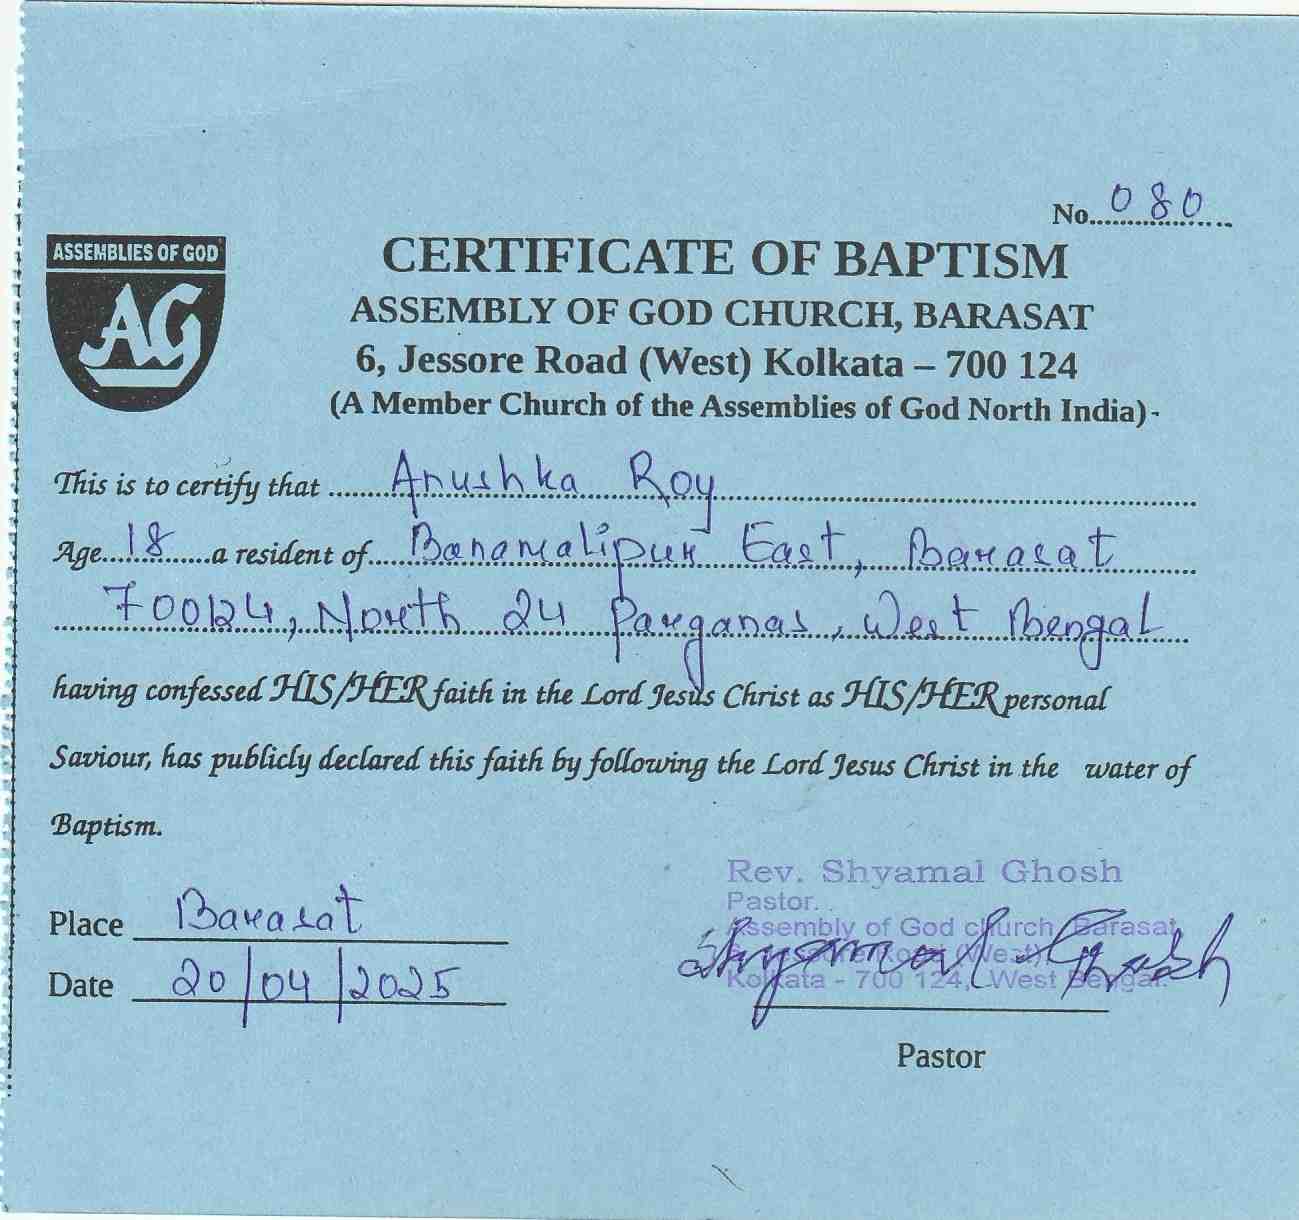 No. 080
ASSEMBLIES OF GOD
AG
CERTIFICATE OF BAPTISM
ASSEMBLY OF GOD CHURCH, BARASAT
6, Jessore Road (West) Kolkata – 700 124
(A Member Church of the Assemblies of God North India)-
This is to certify that Anushka Roy
Age 18 a resident of Banamalipur East, Barasat
700124, North 24 Parganas, West Bengal
having confessed HIS/HER faith in the Lord Jesus Christ as HIS/HER personal
Saviour, has publicly declared this faith by following the Lord Jesus Christ in the water of
Baptism.
Rev. Shyamal Ghosh
Pastor.
Assembly of God church, Barasat
Jessore Road (West),
Kolkata - 700 124, West Bengal.
Shyamal Ghosh
Place Barasat
Date 20/04/2025
Pastor